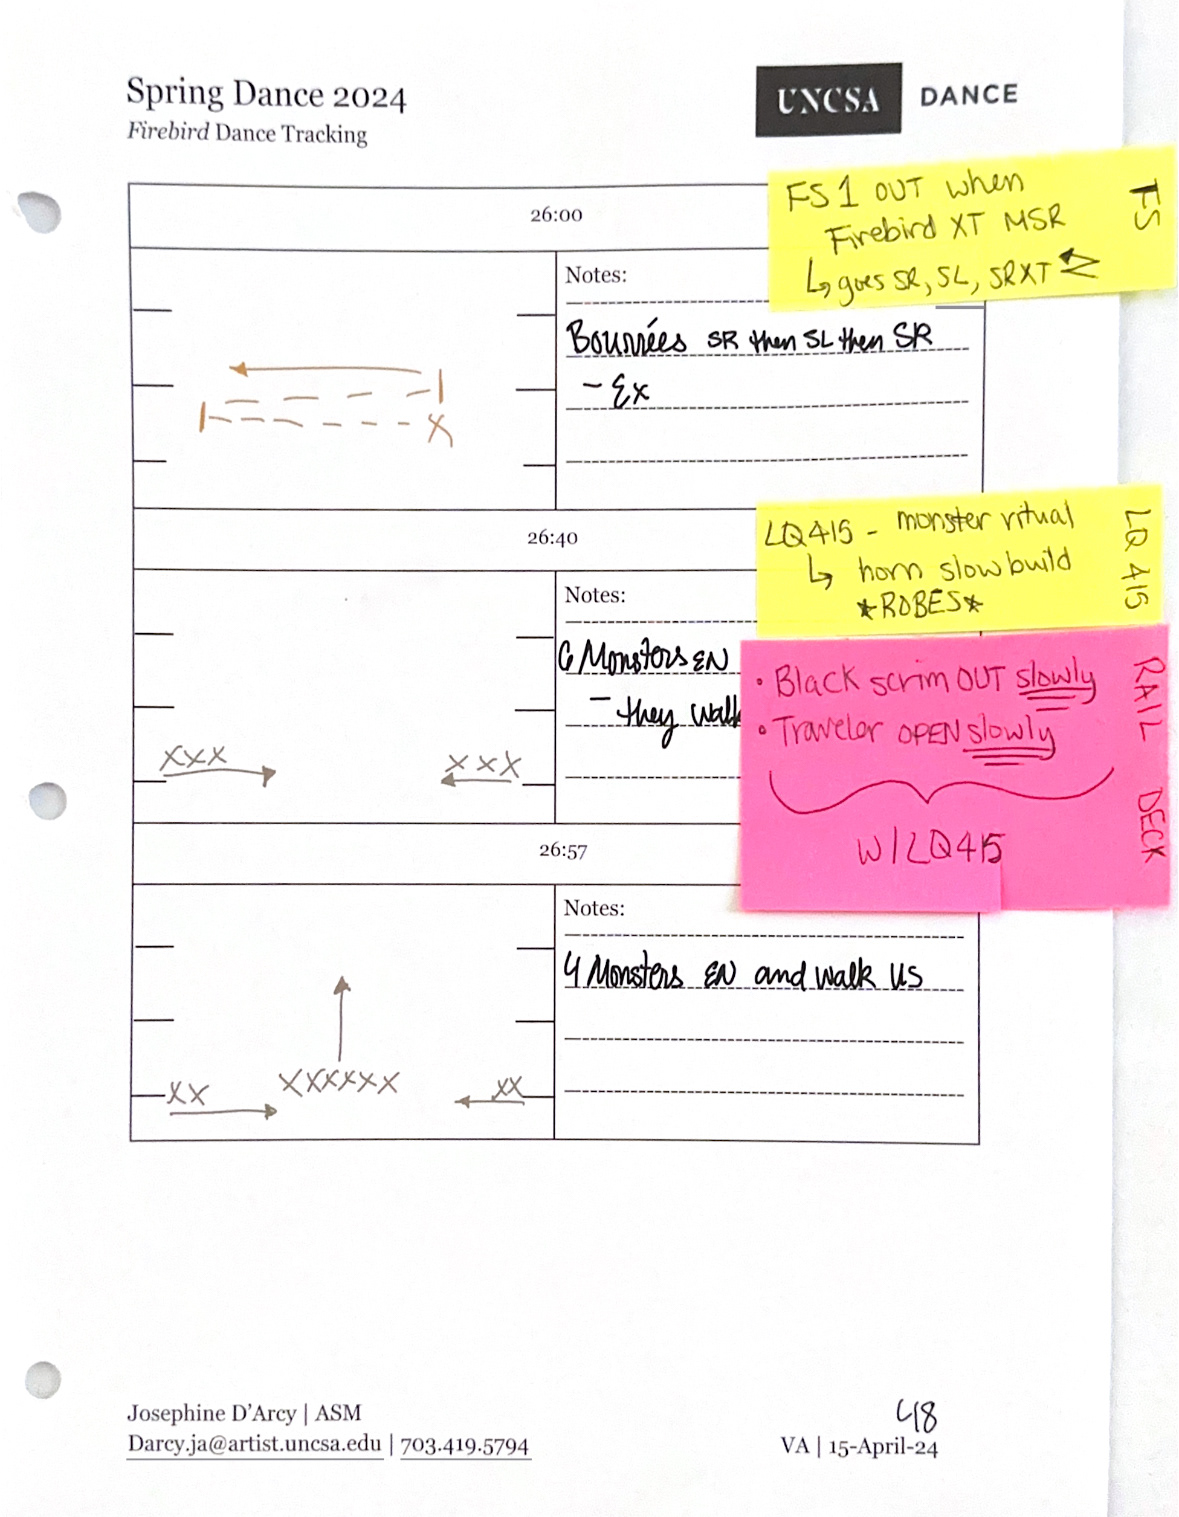 Spring Dance 2024
Firebird Dance Tracking
UNCSA DANCE
FS 1 OUT when
Firebird XT MSR
↳ goes SR, SL, SR XT
FS
26:00
Notes:
Bourrées SR then SL then SR
- Ex
X
LQ415 - monster ritual
↳ horn slow build
*ROBES*
LQ 415
26:40
Notes:
6 Monsters EN
- they walk
XXX
XXX
• Black scrim OUT slowly
• Traveler OPEN slowly
W/LQ415
RAIL
DECK
26:57
Notes:
4 Monsters EN and walk US
XX
XXXXXX
XX
Josephine D'Arcy | ASM
Darcy.ja@artist.uncsa.edu | 703.419.5794
48
VA | 15-April-24